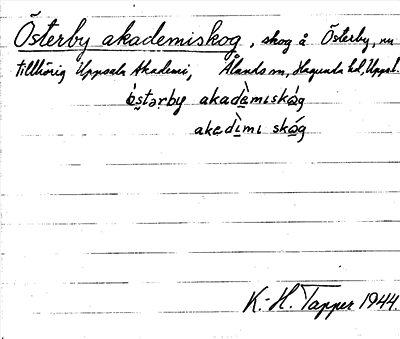 Österby akademiskog, skog å Österby, nu
tillhörig Uppsala Akademi, Ålands sn, Hagunda hd, Uppl.
ö́stərby akadè̱miskó̱g
akadì̱mi skó̱g
K.-H. Tapper 1944.